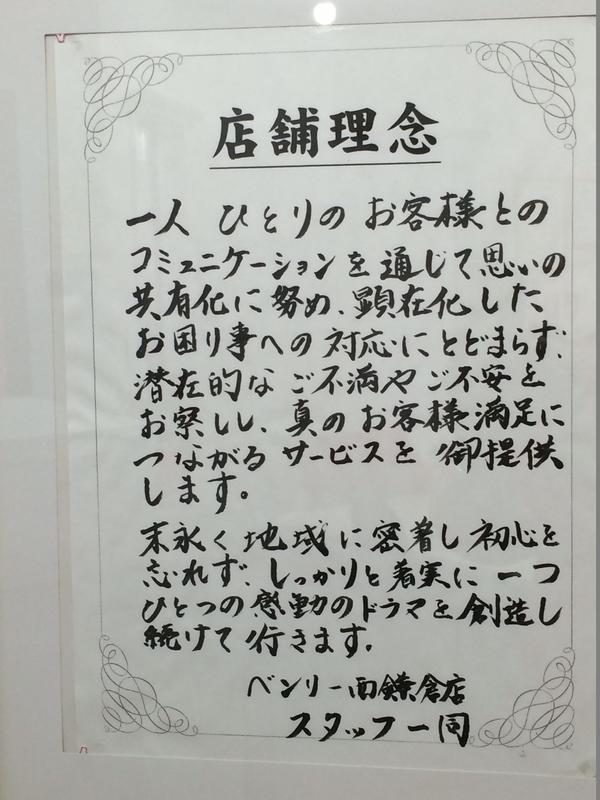 店舗理念
一人 ひとりの お客様との
コミュニケーションを 通じて 思いの
共有化に 努め、顕在化した
お困り事への 対応にとどまらず、
潜在的な ご不満や ご不安を
お察しし、真の お客様満足に
つながる サービスを 御提供
します。
末永く 地域に 密着し 初心を
忘れず、しっかりと 着実に 一つ
ひとつの 感動のドラマを 創造し
続けて 行きます。
ベンリー西鎌倉店
スタッフ一同